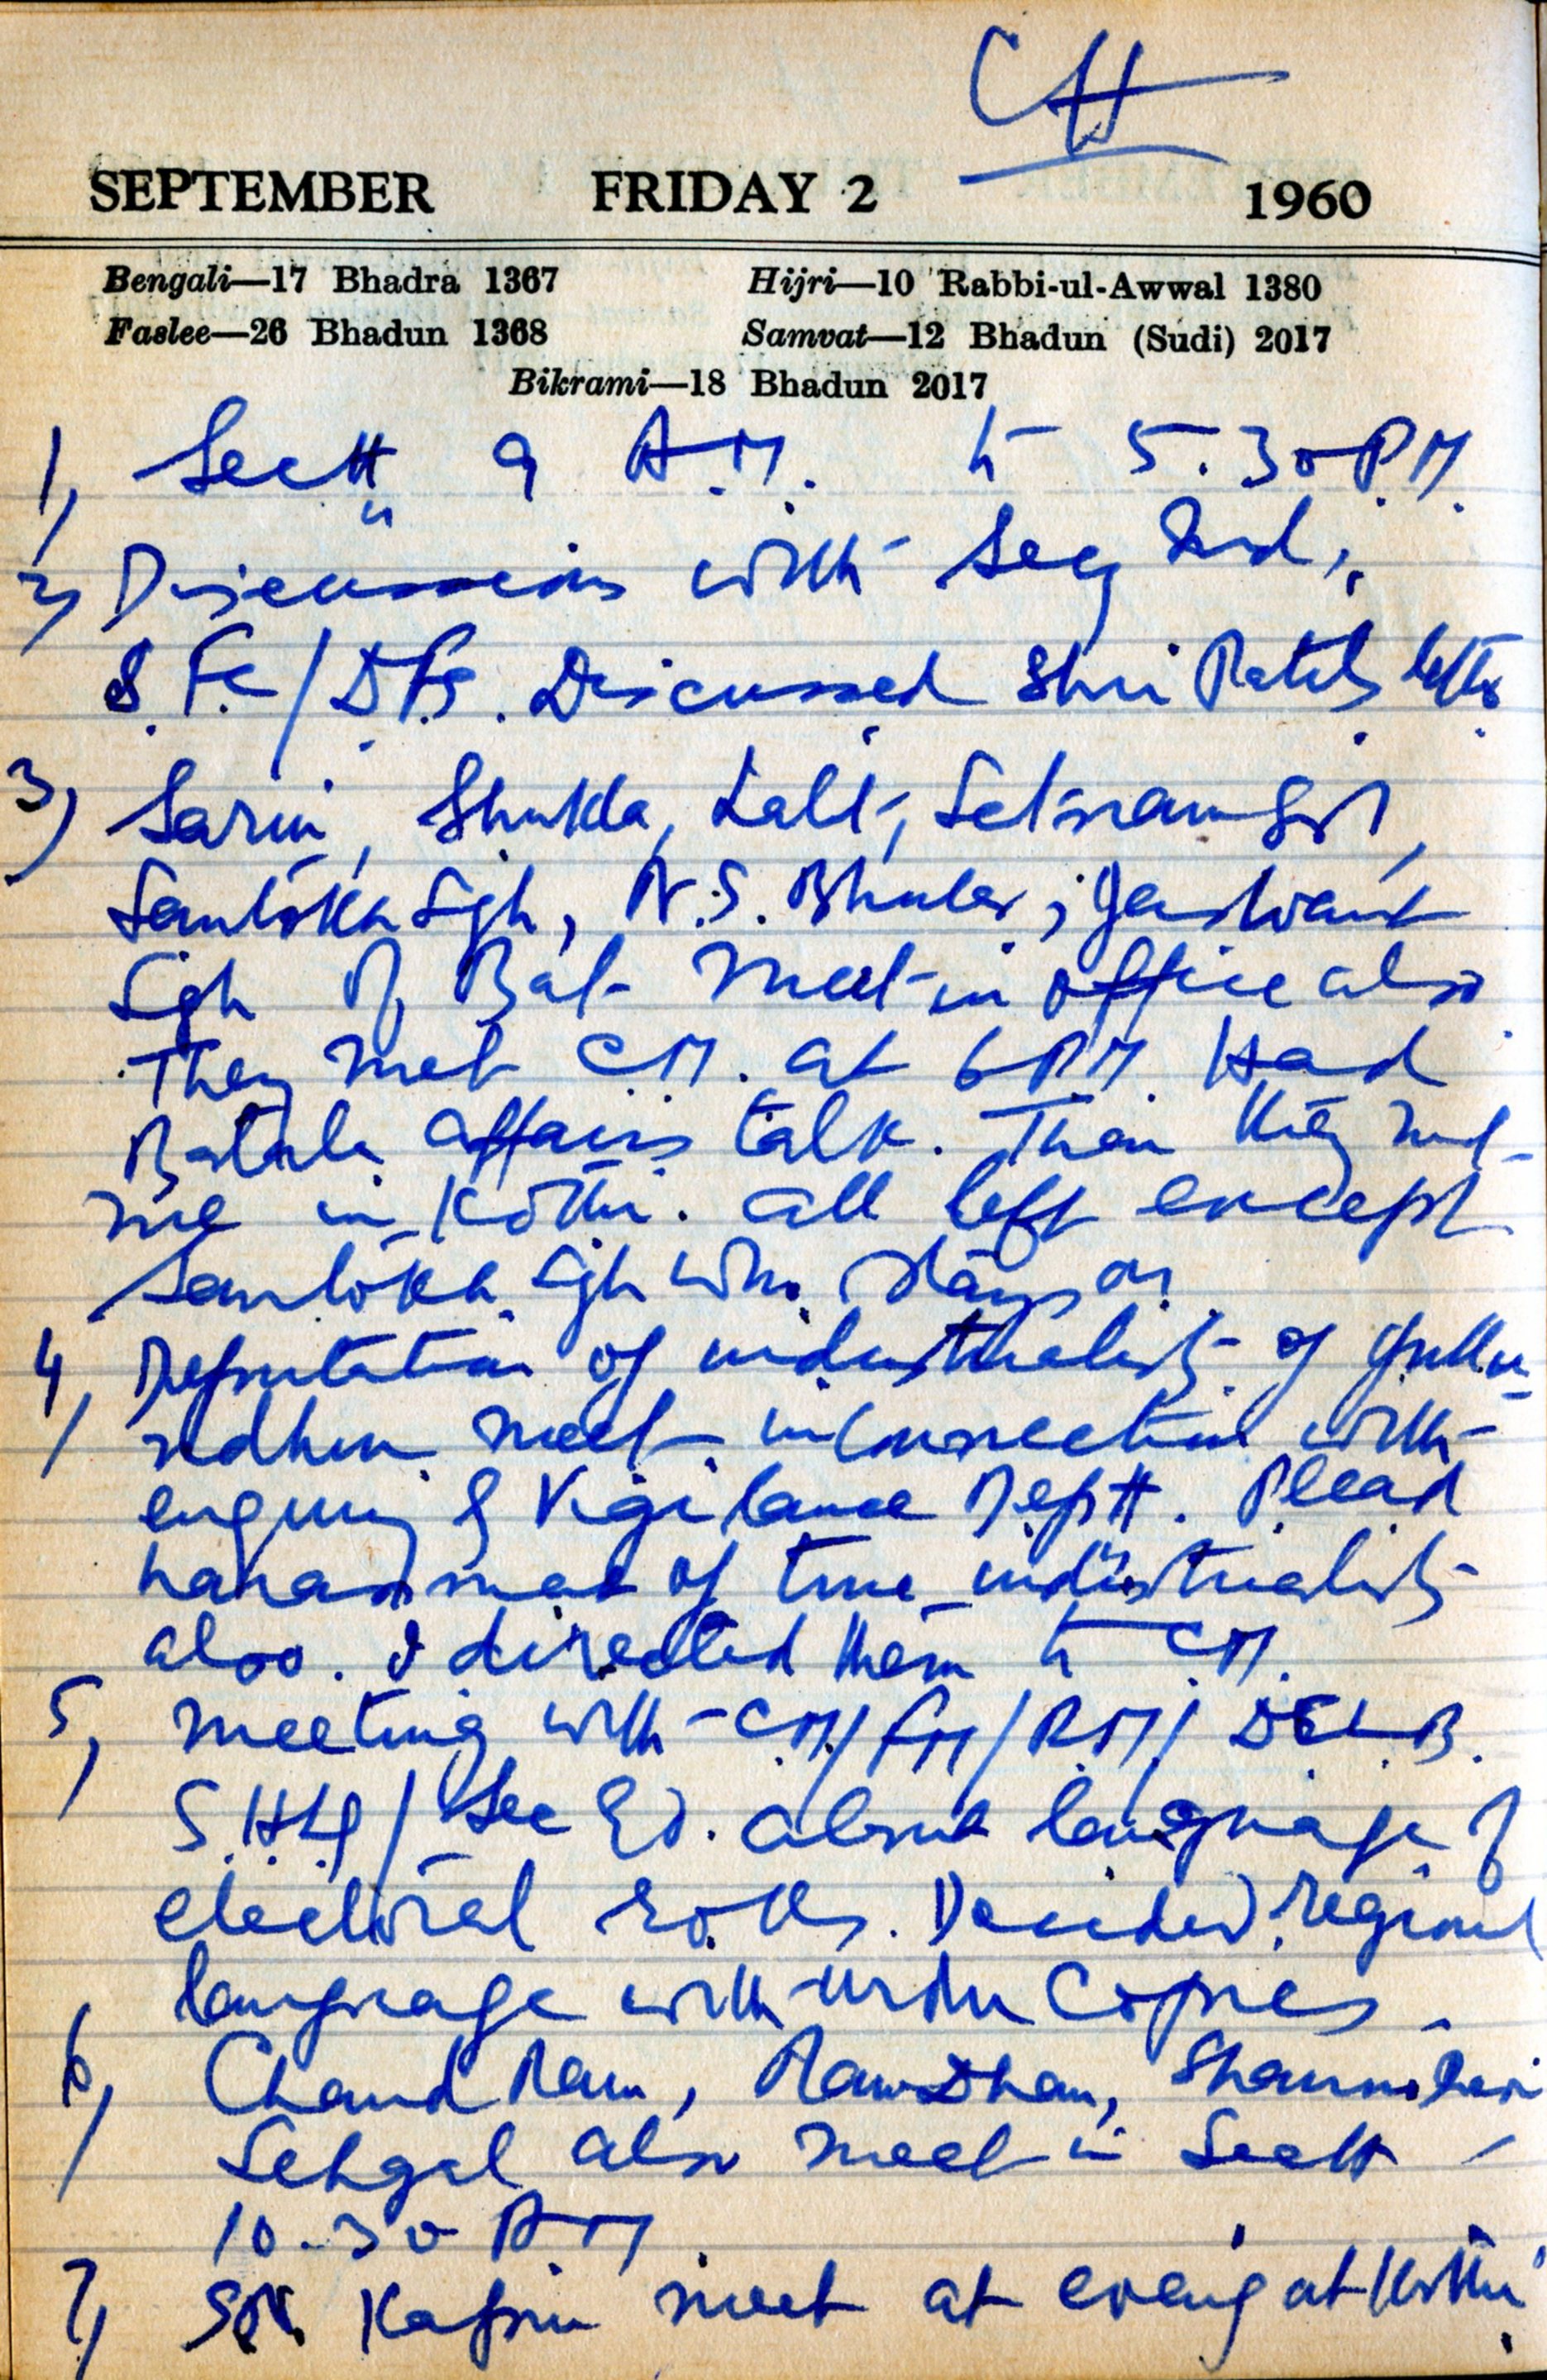 CH
SEPTEMBER FRIDAY 2 1960
Bengali—17 Bhadra 1367 Hijri—10 Rabbi-ul-Awwal 1380
Faslee—26 Bhadun 1368 Samvat—12 Bhadun (Sudi) 2017
Bikrami—18 Bhadun 2017
1, Sectt 9 A.M. to 5.30 P.M.
2, Discussions with Secy Ind,
Discussed Shri Patels letter
3, Sarin, Shukla, Lalt, Satnam Sgh,
Santokh Sgh, N.S. Bhuler, Jaswant
Sgh of Bat meet in office also
They met C.M. at 6 P.M. Had
Batala affairs talk. Then they met
me in Kothi. all left except
Santokh Sgh who stays on
4, Deputation of industrialists of Jullu
ndhur meet in connection with
enquiry of Vigilance Deptt. Plead
harassment of true industrialists
also. I directed them to CM.
5, meeting with C.M/FM/RM/
Sec Ed. about language of
electoral rolls. Decided regional
language with urdu copies.
6, Chand Ram, Ram Dhan, Shanno Devi
Sehgal also meet in Sectt
10-30 A.M
7, Kapur meet at eveng at Kothi